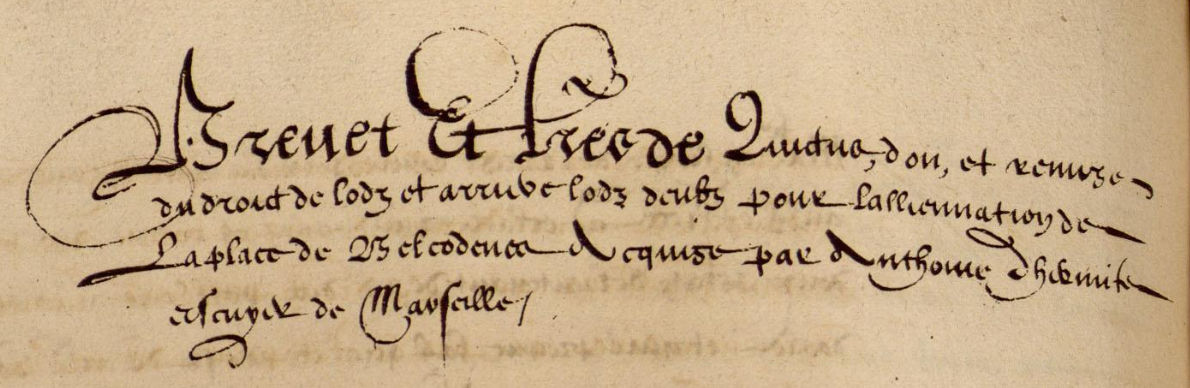 Brevet Et Lres de Quictus, don, et remize
du droict de lodz et arrive lodz deubz pour lalliennation de
La place de Belcodenes Acquize par Anthoine Dhermite
escuyer de Marseille /